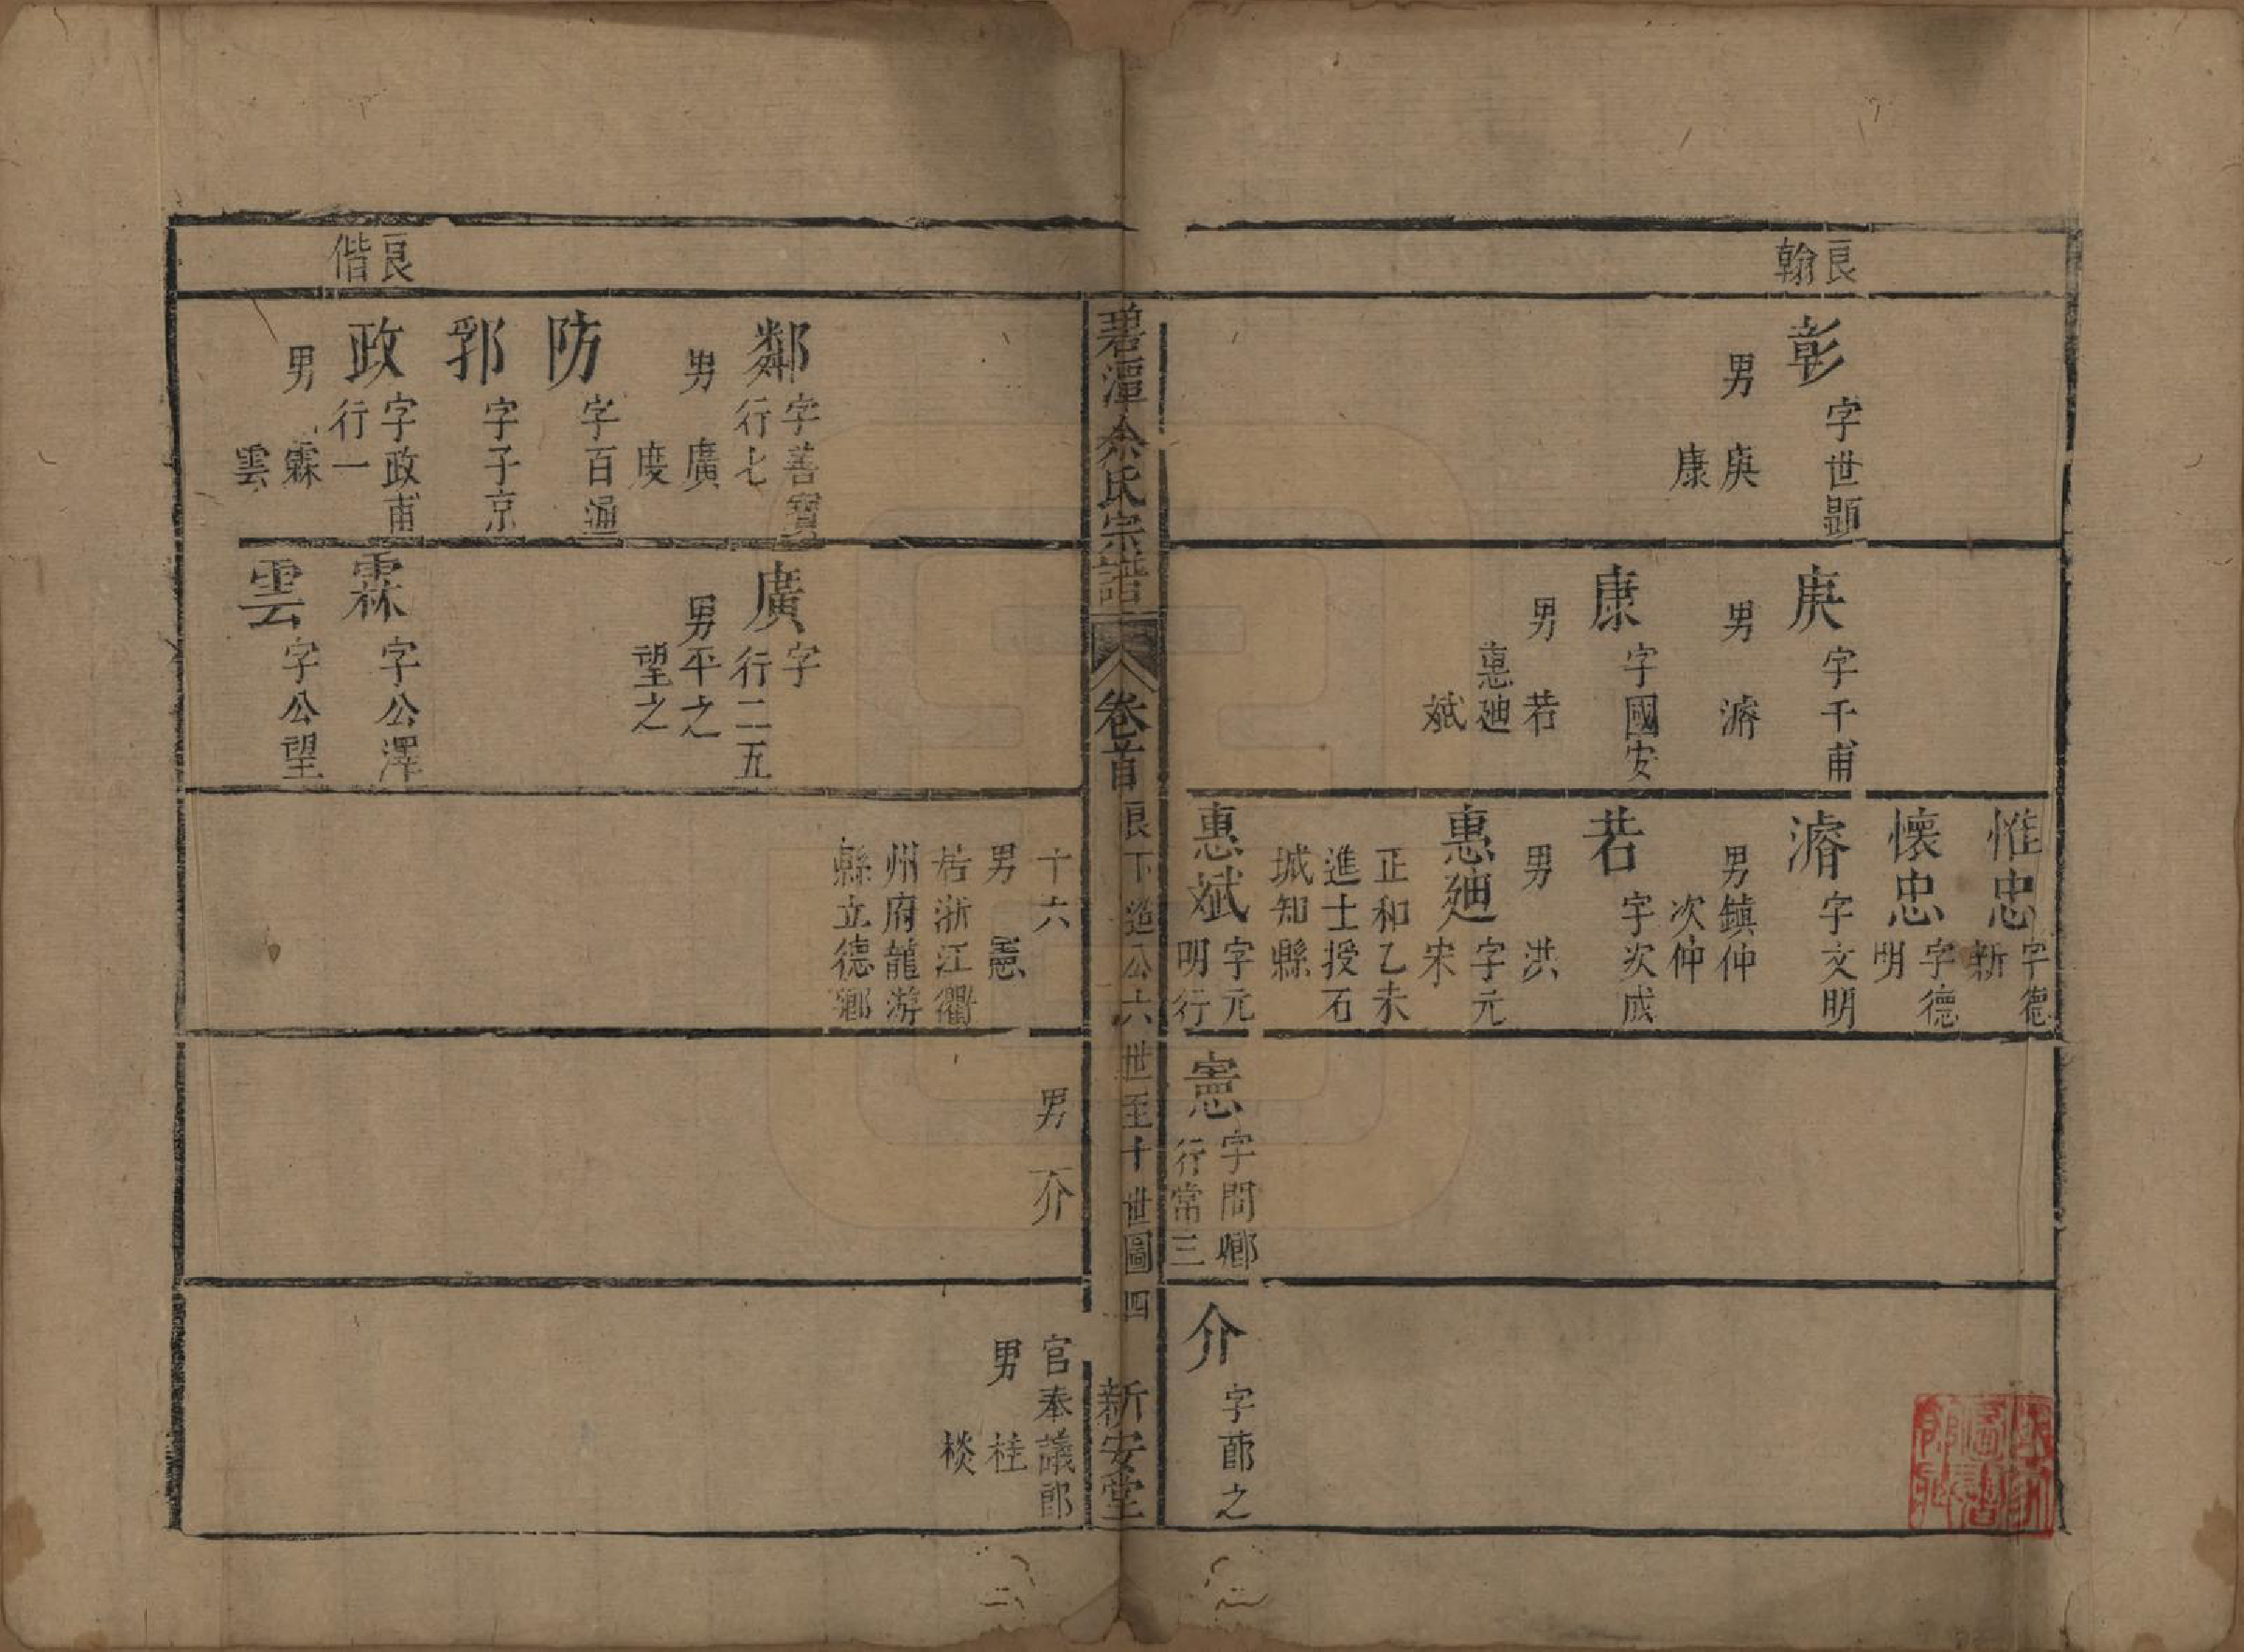 良翰
彰 字世顯
男 庚
康
庚 字千甫
男 濬
康 字國安
男 若
惠廸
斌
惟忠 字德新
懷忠 字德明
濬 字文明
男鎮仲
次仲
若 字次成
男 洪
惠廸 字元宋
正和乙未
進士授石
城知縣
惠斌 字元明行
憲 字問鄉
行常三
介 字節之
碧潭余氏宗譜 卷首 良下 公六世至十世圖 四 新安堂
鄰 字善寶
行七
男 廣
度
防 字百通
郛 字子京
良偕
政 字政甫
行一
男 霖
雲
廣 字
行二五
男平之
望之
霖 字公澤
雲 字公望
十六
男 憲
居浙江衢
州府龍游
縣立德鄉
男 介
官奉議郎
男 桂
棪